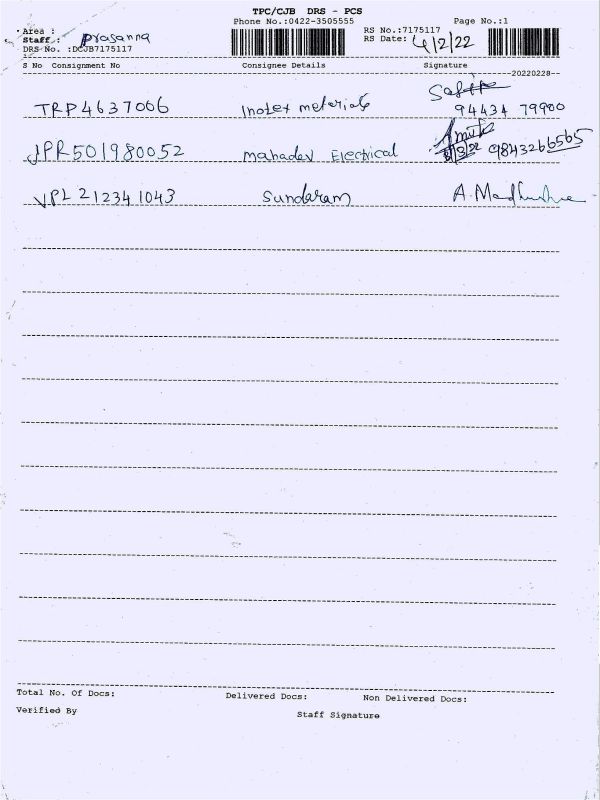 TPC/CJB DRS - PCS
Phone No.:0422-3505555 Page No.:1
Area : RS No.:7175117
Staff : prasanna RS Date: 4/2/22
DRS No. :DCJB7175117
S No Consignment No Consignee Details Signature
--20220228--
TRP4637006 Inotex meterials 94434 79900
JPR501980052 mahadev Electrical 9843266565
VPL 212341043 Sundaram A. Madhushree
Total No. Of Docs: Delivered Docs: Non Delivered Docs:
Verified By Staff Signature